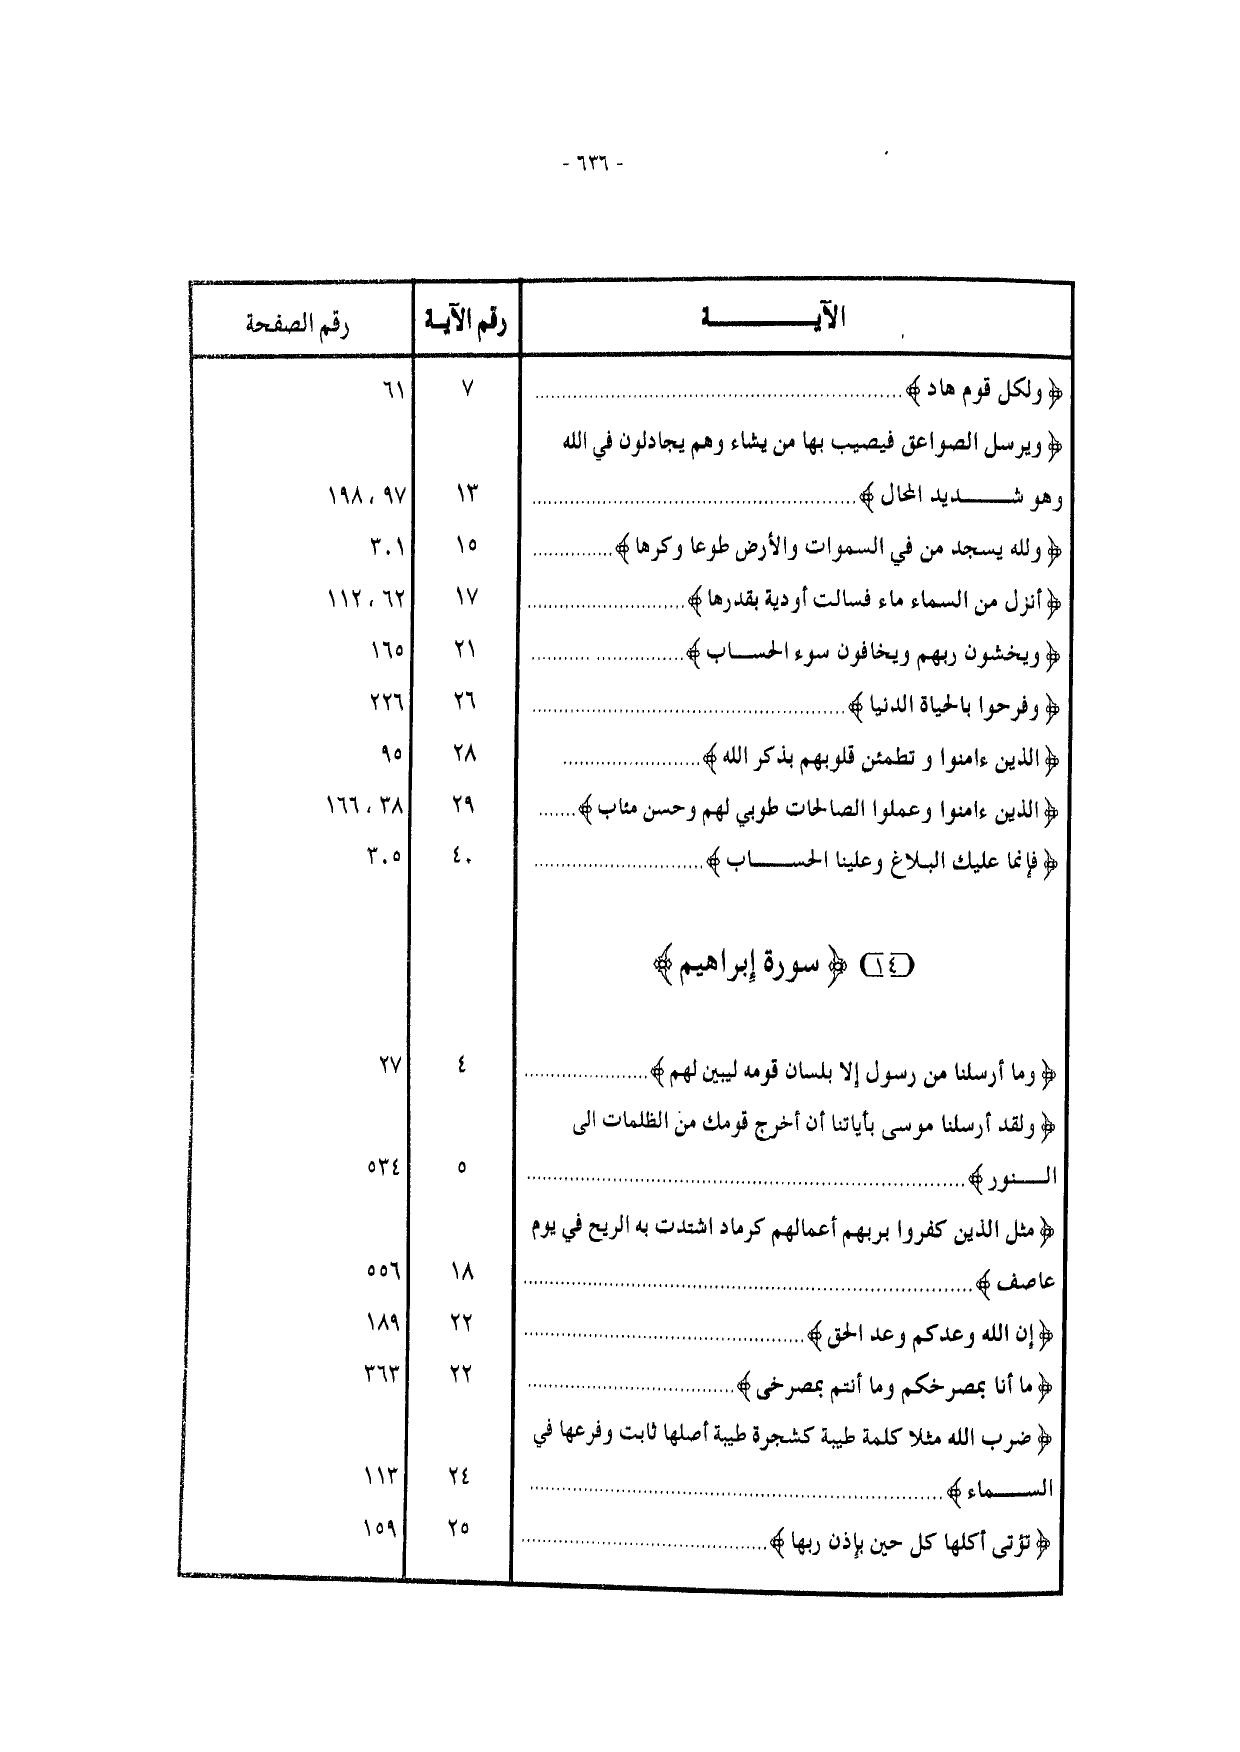 - ٦٣٦ -
الآيــــــــة رقم الآيـة رقم الصفحة
﴿ ولكل قوم هاد ﴾ ........ ٧ ٦١
﴿ ويرسل الصواعق فيصيب بها من يشاء وهم يجادلون في الله
وهو شـــــديد المحال ﴾ ........ ١٣ ٩٧ ، ١٩٨
﴿ ولله يسجد من في السموات والأرض طوعا وكرها ﴾ ........ ١٥ ٣٠١
﴿ أنزل من السماء ماء فسالت أودية بقدرها ﴾ ........ ١٧ ٦٢ ، ١١٢
﴿ ويخشون ربهم ويخافون سوء الحســاب ﴾ ........ ٢١ ١٦٥
﴿ وفرحوا بالحياة الدنيا ﴾ ........ ٢٦ ٢٢٦
﴿ الذين ءامنوا و تطمئن قلوبهم بذكر الله ﴾ ........ ٢٨ ٩٥
﴿ الذين ءامنوا وعملوا الصالحات طوبي لهم وحسن مئاب ﴾ ........ ٢٩ ٣٨ ، ١٦٦
﴿ فإنما عليك البلاغ وعلينا الحســــاب ﴾ ........ ٤٠ ٣٠٥
(١٤) ﴿ سورة إبراهيم ﴾
﴿ وما أرسلنا من رسول إلا بلسان قومه ليبين لهم ﴾ ........ ٤ ٢٧
﴿ ولقد أرسلنا موسى بأياتنا أن أخرج قومك من الظلمات الى
الـــنور ﴾ ........ ٥ ٥٣٤
﴿ مثل الذين كفروا بربهم أعمالهم كرماد اشتدت به الريح في يوم
عاصف ﴾ ........ ١٨ ٥٥٦
﴿ إن الله وعدكم وعد الحق ﴾ ........ ٢٢ ١٨٩
﴿ ما أنا بمصرخكم وما أنتم بمصرخى ﴾ ........ ٢٢ ٣٦٣
﴿ ضرب الله مثلا كلمة طيبة كشجرة طيبة أصلها ثابت وفرعها في
الســــماء ﴾ ........ ٢٤ ١١٣
﴿ تؤتى أكلها كل حين بإذن ربها ﴾ ........ ٢٥ ١٥٩